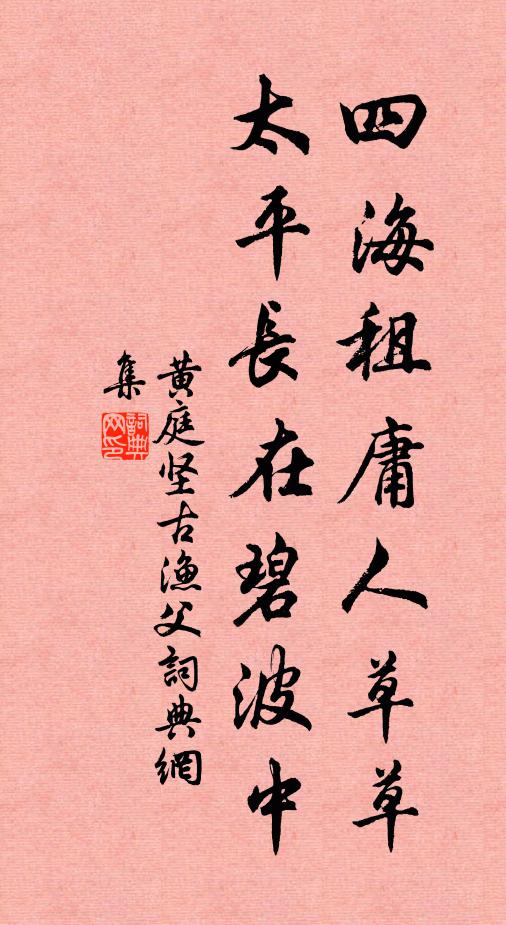 四海租庸人草草
太平長在碧波中
黄庭坚古漁父詞典網
集
詞典网印